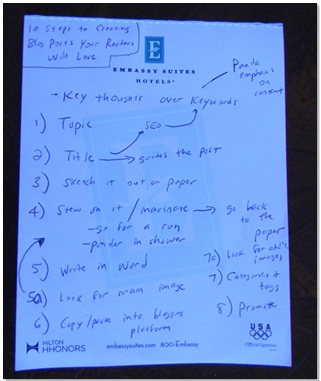 10 Steps to Creating
Blog Posts Your Readers
Will Love
E
EMBASSY SUITES
HOTELS
Panda
emphasis
on
content
- Key thoughts over Keywords
1) Topic
SEO
2) Title → guides the post
3) Sketch it out on paper
4) Stew on it / marinate → go back
to the
paper
- go for a run
- ponder in shower
5) Write in Word
5a) Look for main image
6) Copy/paste into blogging
platform
7a) Look
for
images
7) Categories &
tags
8) Promote
HILTON
HHONORS
embassysuites.com 800-Embassy
USA
Official Sponsor